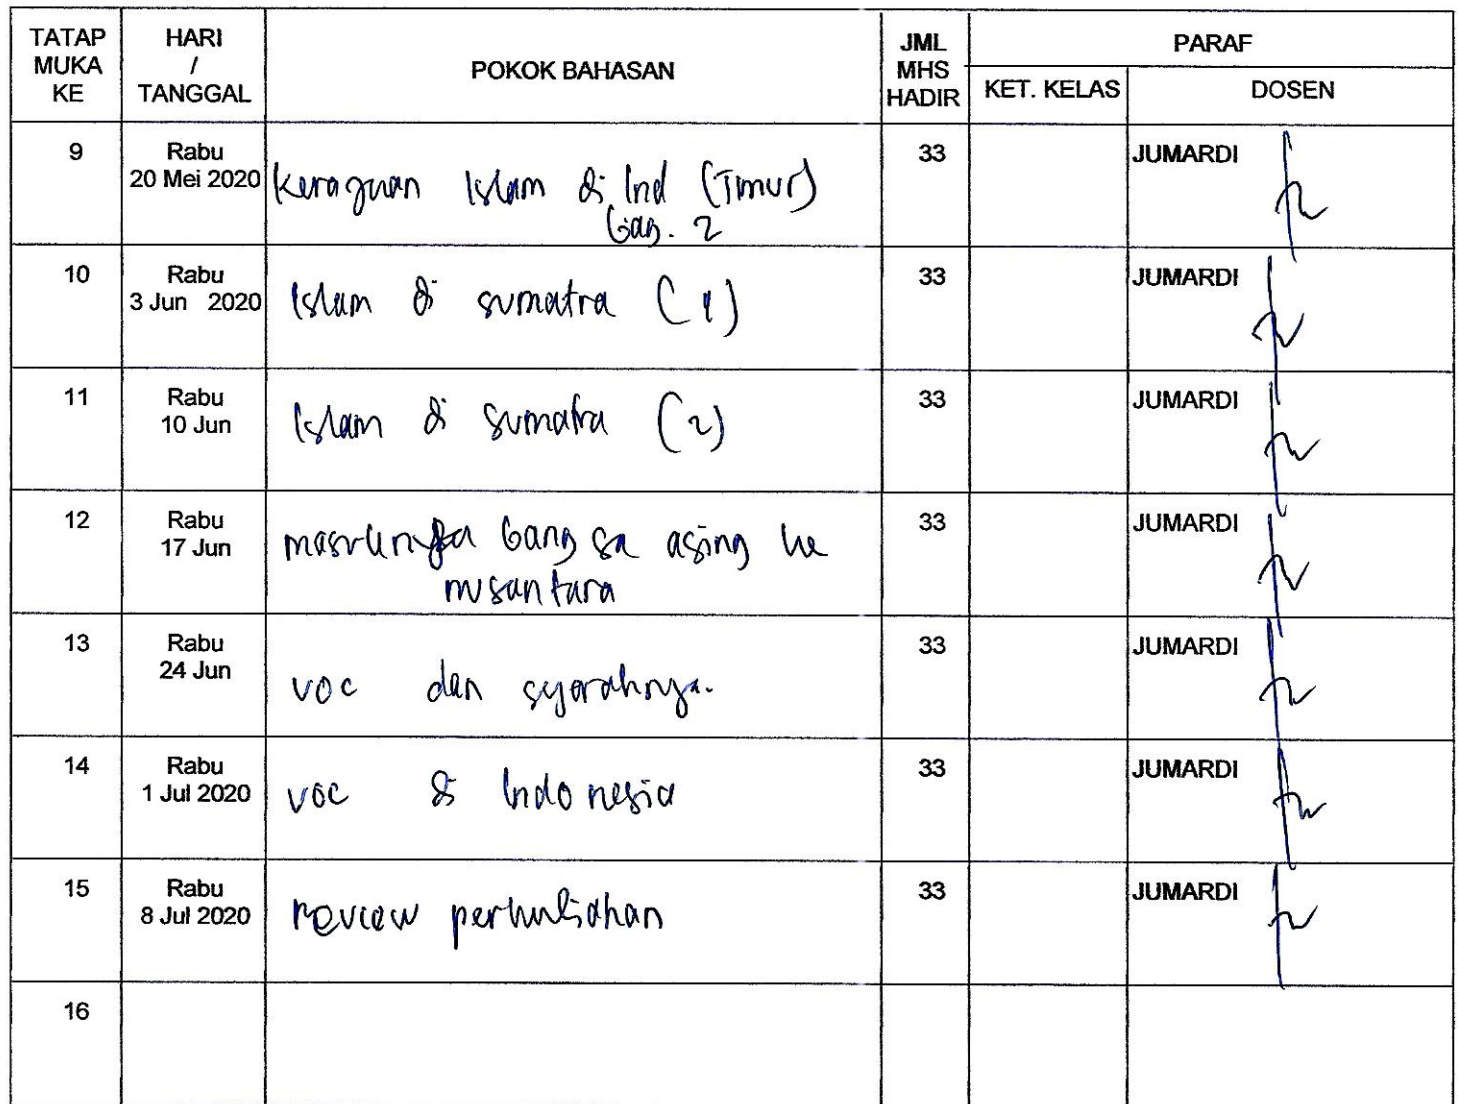 TATAP MUKA KE | HARI / TANGGAL | POKOK BAHASAN | JML MHS HADIR | PARAF
KET. KELAS | DOSEN
9 | Rabu 20 Mei 2020 | Kerajaan Islam di Ind (Timur) bag. 2 | 33 | JUMARDI
10 | Rabu 3 Jun 2020 | Islam di sumatra (1) | 33 | JUMARDI
11 | Rabu 10 Jun | Islam di sumatra (2) | 33 | JUMARDI
12 | Rabu 17 Jun | masuknya bangsa asing ke nusantara | 33 | JUMARDI
13 | Rabu 24 Jun | voc dan sejarahnya. | 33 | JUMARDI
14 | Rabu 1 Jul 2020 | voc di Indonesia | 33 | JUMARDI
15 | Rabu 8 Jul 2020 | Review perkuliahan | 33 | JUMARDI
16